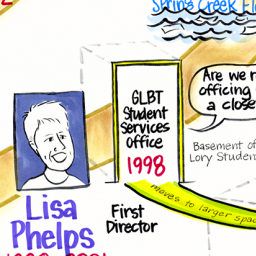 Spring Creek
GLBT
Student
Services
Office
1998
Are we
officing
a close
Basement of
Lory Student
moves to larger space
Lisa
Phelps
First
Director